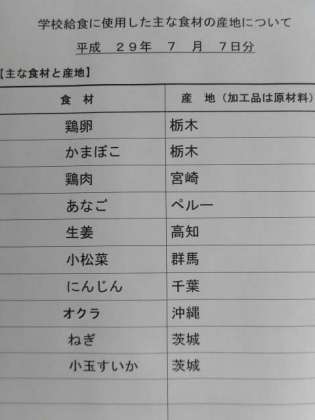 学校給食に使用した主な食材の産地について
平成 29年 7 月 7日分
【主な食材と産地】
食 材 産 地（加工品は原材料）
鶏卵 栃木
かまぼこ 栃木
鶏肉 宮崎
あなご ペルー
生姜 高知
小松菜 群馬
にんじん 千葉
オクラ 沖縄
ねぎ 茨城
小玉すいか 茨城